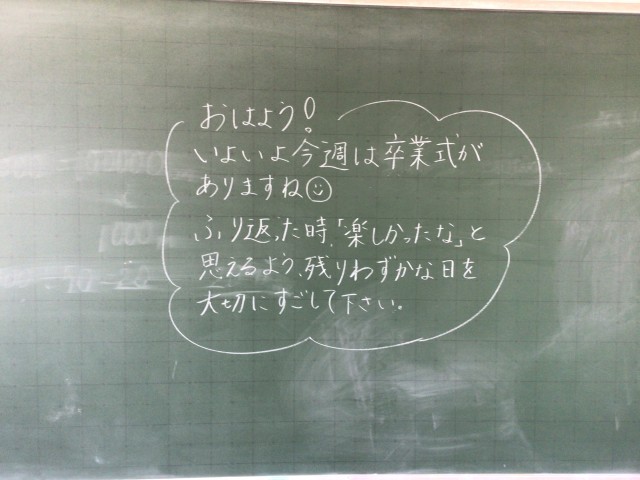 おはよう!
いよいよ今週は卒業式が
ありますね☺
ふり返った時、「楽しかったな」と
思えるよう、残りわずかな日を
大切にすごして下さい。